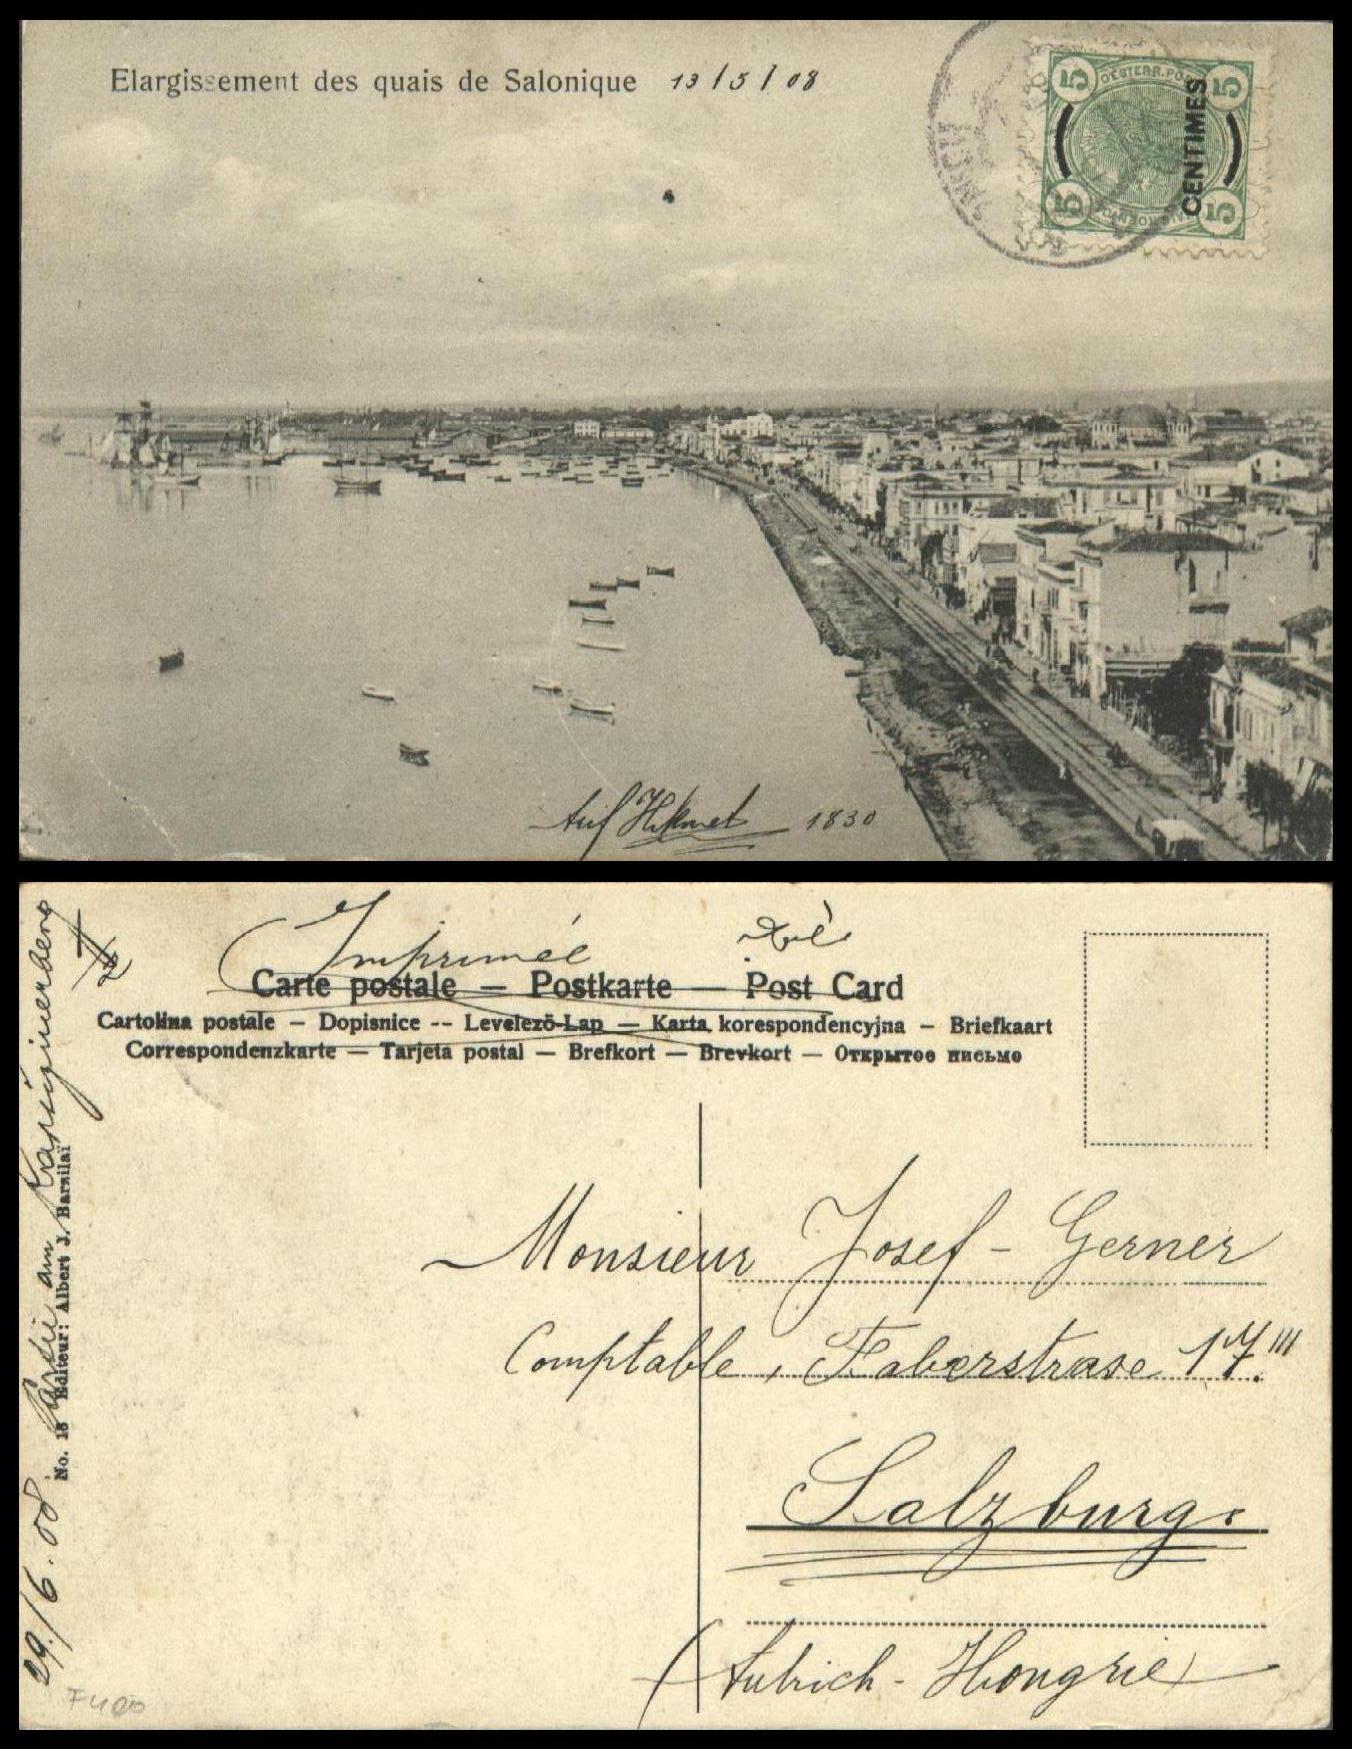 Elargissement des quais de Salonique 13/5/08
5 OESTERR. POST 5
CENTIMES
5 5
Hikmet 1830
Imprimée
Carte postale — Postkarte — Post Card
Cartolina postale – Dopisnice -- Levelező-Lap — Karta korespondencyjna – Briefkaart
Correspondenzkarte — Tarjeta postal — Brefkort — Brevkort — Открытое письмо
Monsieur Josef - Gerner
Comptable, Faberstrasse 17.III
Salzburg.
(Autrich - Hongrie)
29./6.08 am Kapuzinerberg
No. 18 Editeur: Albert J. Barzilaï